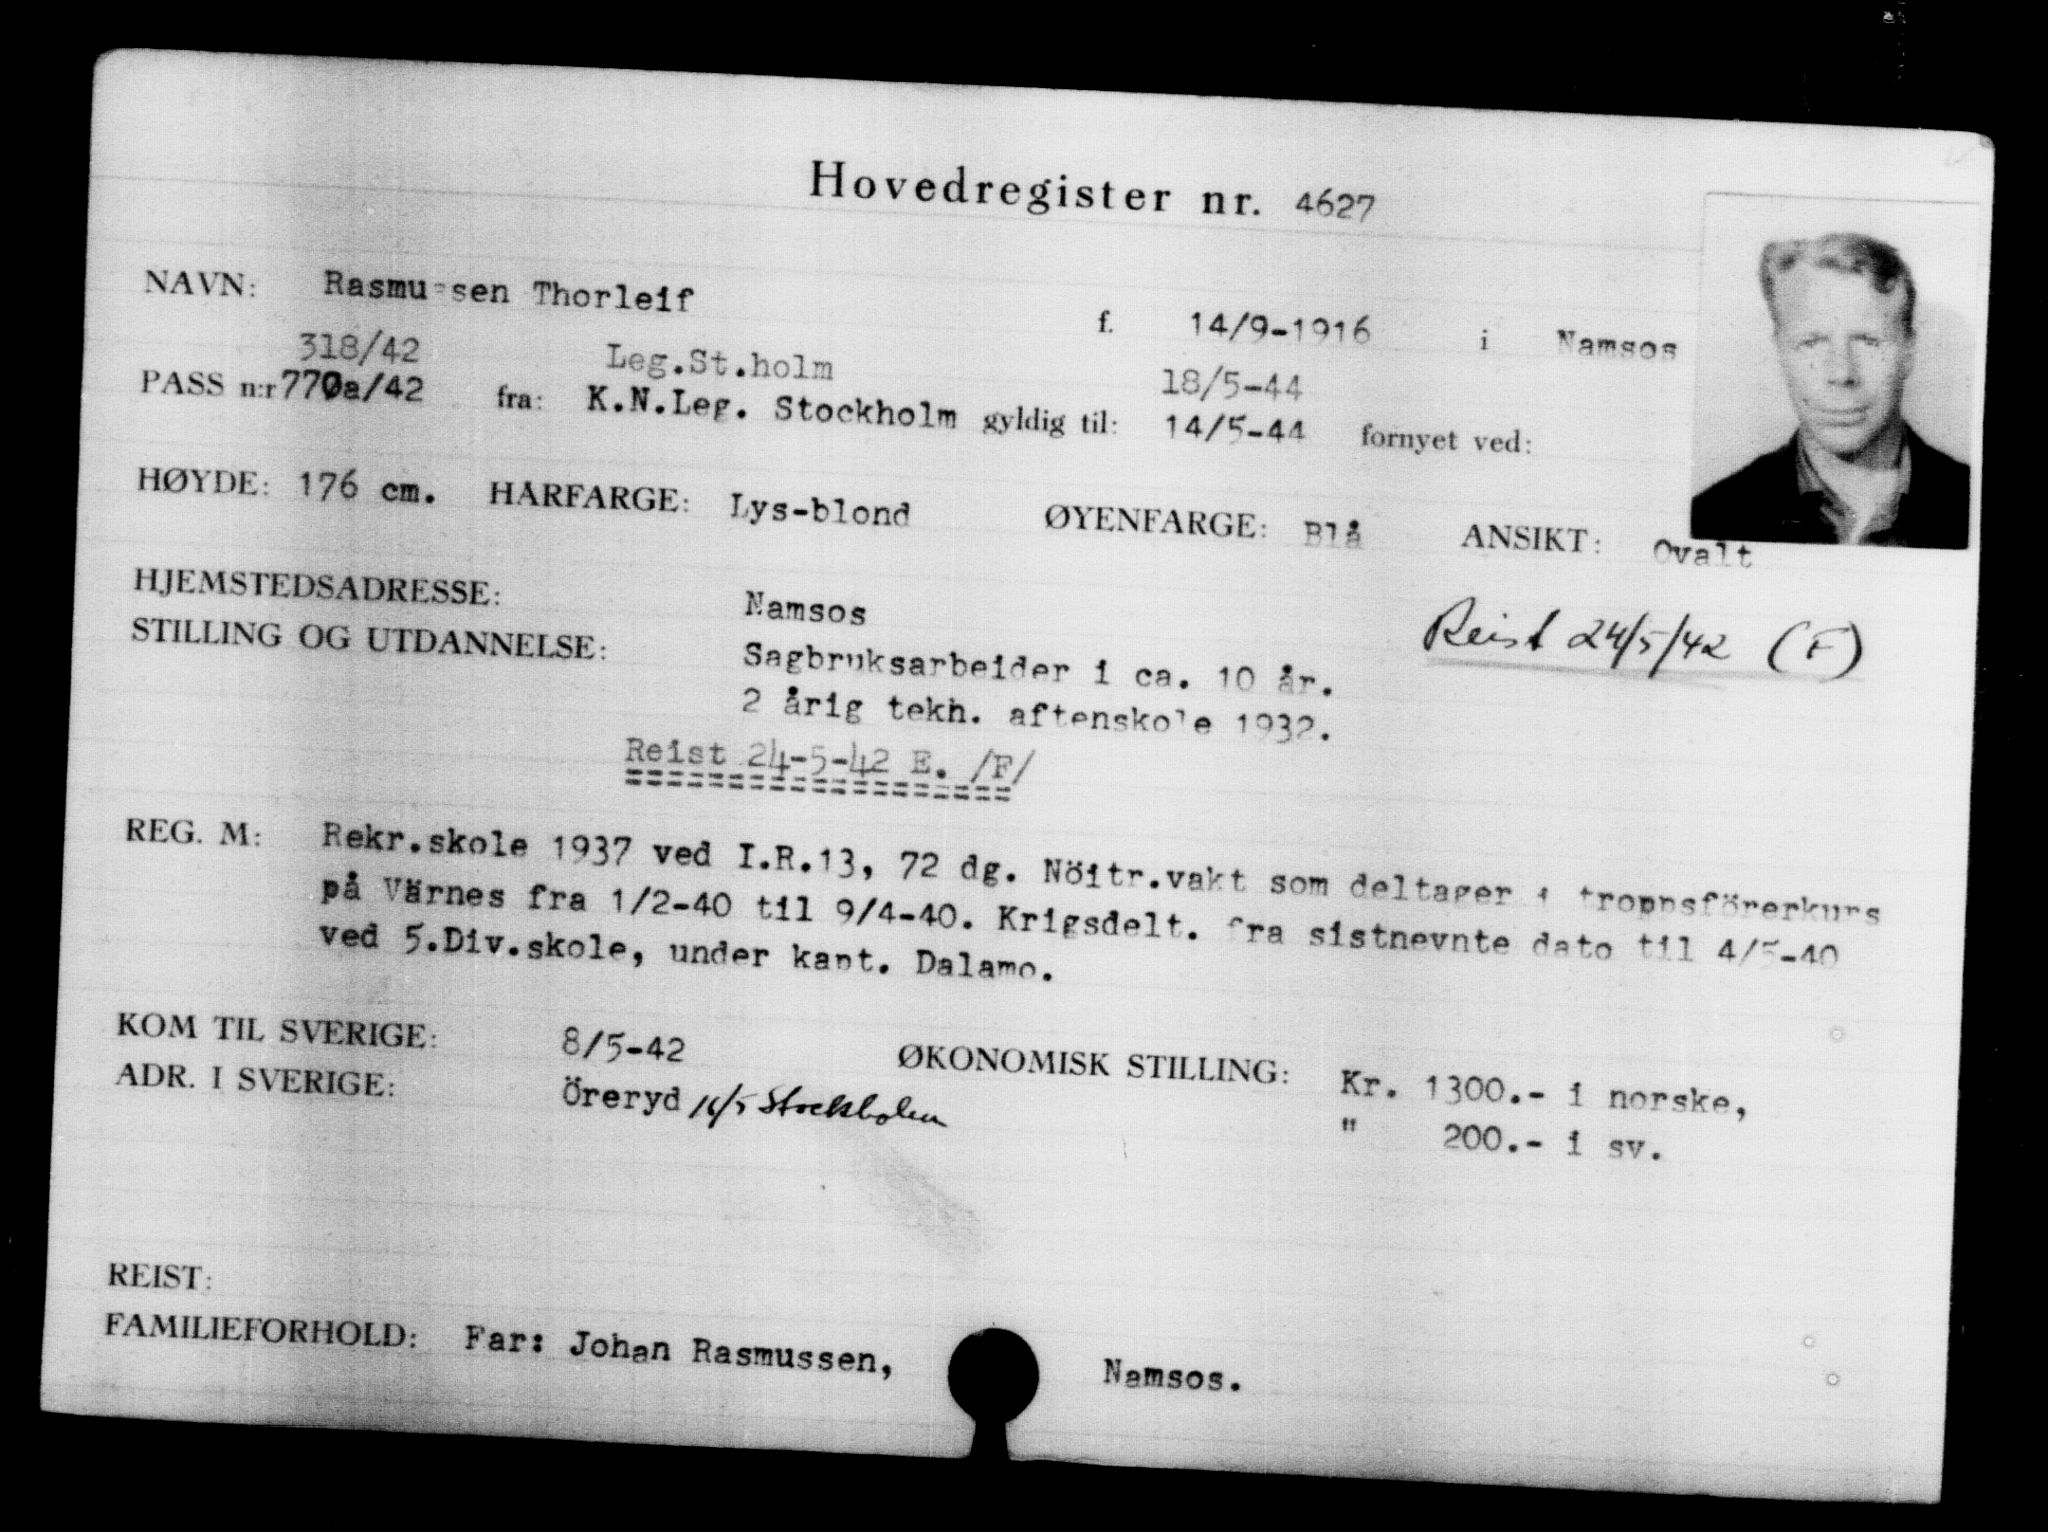 Hovedregister nr. 4627
NAVN: Rasmussen Thorleif f. 14/9-1916 i Namsos
318/42 Leg.St.holm 18/5-44
PASS n:r 770a/42 fra: K.N.Leg. Stockholm gyldig til: 14/5-44 fornyet ved:
HØYDE: 176 cm. HÅRFARGE: Lys-blond ØYENFARGE: Blå ANSIKT: Ovalt
HJEMSTEDSADRESSE: Namsos
Reist 24/5/42 (F)
STILLING OG UTDANNELSE: Sagbruksarbeider i ca. 10 år.
2 årig tekh. aftenskole 1932.
Reist 24-5-42 E. /F/
==================
REG. M: Rekr.skole 1937 ved I.R.13, 72 dg. Nöitr.vakt som deltager i troppsförerkurs
på Värnes fra 1/2-40 til 9/4-40. Krigsdelt. fra sistnevnte dato til 4/5-40
ved 5.Div.skole, under kapt. Dalamo.
KOM TIL SVERIGE: 8/5-42 ØKONOMISK STILLING: Kr. 1300.- i norske,
ADR. I SVERIGE: Öreryd 16/5 Stockholm " 200.- i sv.
REIST:
FAMILIEFORHOLD: Far: Johan Rasmussen, Namsos.